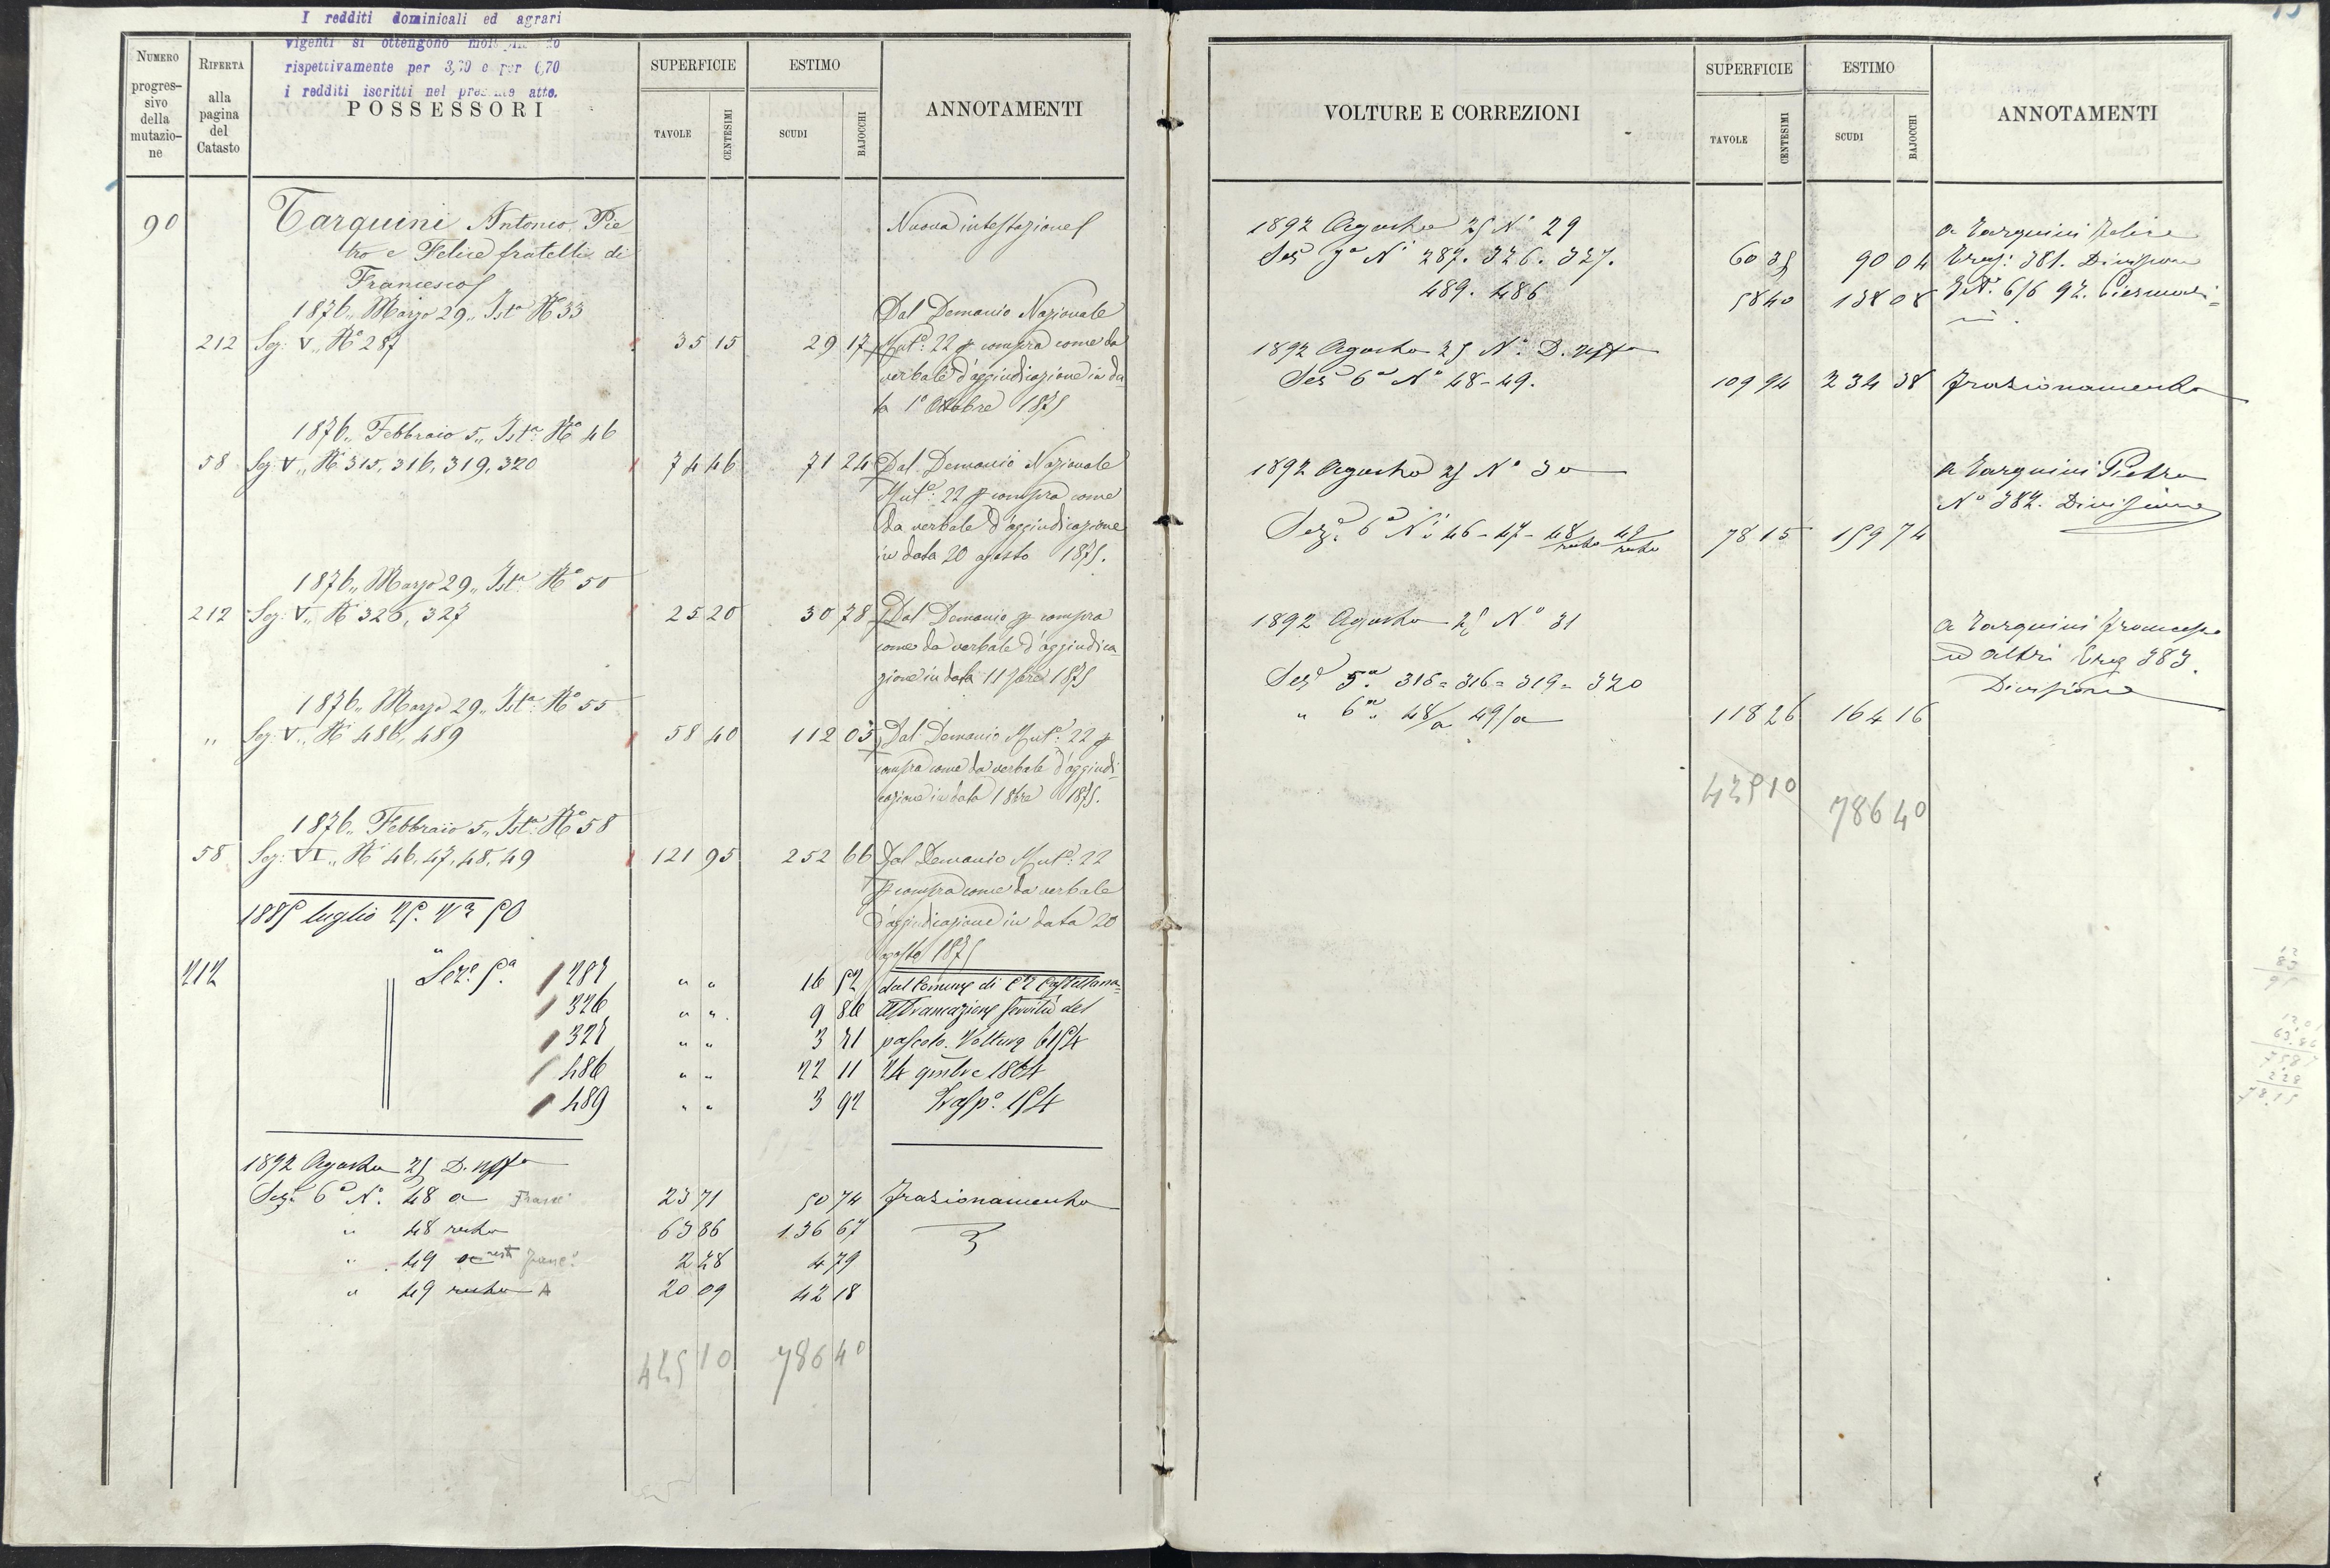 I redditi dominicali ed agrari
vigenti si ottengono
rispettivamente per 3,70 e per 6,70
i redditi iscritti nel presente atto.
NUMERO progres-
sivo
della
mutazio-
ne
RIFERTA
alla
pagina
del
Catasto
POSSESSORI
SUPERFICIE
TAVOLE
CENTESIMI
ESTIMO
SCUDI
BAJOCCHI
ANNOTAMENTI
90 Tarquini Antonio, Pie Nuova intestazione
tro e Felice fratelli di
Francesco
1876,, Marzo 29,, Ista No 33 Dal Demanio Nazionale
212 Sez: V,, No 287 35 15 29 17 Muta: 22 p compra come da
verbale d'aggiudicazione in da
ta 1o Ottobre 1875
1876,, Febbraio 5,, Ista No 46
58 Sez: V,, Ni 315, 316, 319, 320 74 46 71 24 Dal Demanio Nazionale
Muta: 22 p compra come
da verbale d'aggiudicazione
in data 20 agosto 1875.
1876,, Marzo 29,, Ista No 50
212 Sez: V,, Ni 326, 327 25 20 30 78 Dal Demanio p compra
come da verbale d'aggiudica
zione in data 11 1875
1876,, Marzo 29,, Ista No 55
,, Sez: V,, Ni 486, 489 58 40 112 05 Dal Demanio Muta: 22 p
compra come da verbale d'aggiudi
cazione in data 1 8bre 1875.
1876,, Febbraio 5,, Ista No 58
58 Sez: VI,, Ni 46, 47, 48, 49 121 95 252 66 Dal Demanio Muta: 22
p compra come da verbale
d'aggiudicazione in data 20
agosto 1875
1885 luglio 25. No 50
212 Sez.e 5a. 287 " " 16 52 dal Comune di Ca Castellana=
326 " " 9 86 Affrancazione servitù del
327 " " 3 71 pascolo. Voltura 6154
486 " " 22 11 24 1884
489 " " 3 92 Trasp.o 154
1892 Agosto 25 D. uffo
Sez. 6a No. 48 a Franc. 23 71 50 74 Frazionamento
" 48 resto 63 86 136 67
" 49 rest Franc. 2 28 4 79
" 49 resto A 20 09 42 18
425 10 786 40
VOLTURE E CORREZIONI
SUPERFICIE
TAVOLE
CENTESIMI
ESTIMO
SCUDI
BAJOCCHI
ANNOTAMENTI
1892 Agosto 25 No 29 a Tarquini Felice
No 287. 326. 327. 60 35 90 04 381. Divisione
489. 486 58 40 138 08
1892 Agosto 25 No. D. uffo
Sez 6a No 48 - 49. 109 94 234 38 Frazionamento
1892 Agosto 25 No 30 a Tarquini Pietro
No 382. Divisione
Sez. 6a Ni 46 - 47 - 48/resto 49/resto 78 15 159 74
1892 Agosto 25 No 31 a Tarquini Francesco
ed altri 383.
Divisione
Sez 5a. 315 = 316 = 319 = 320
" 6a. 48/a 49/a 118 26 164 16
425 10
786 40